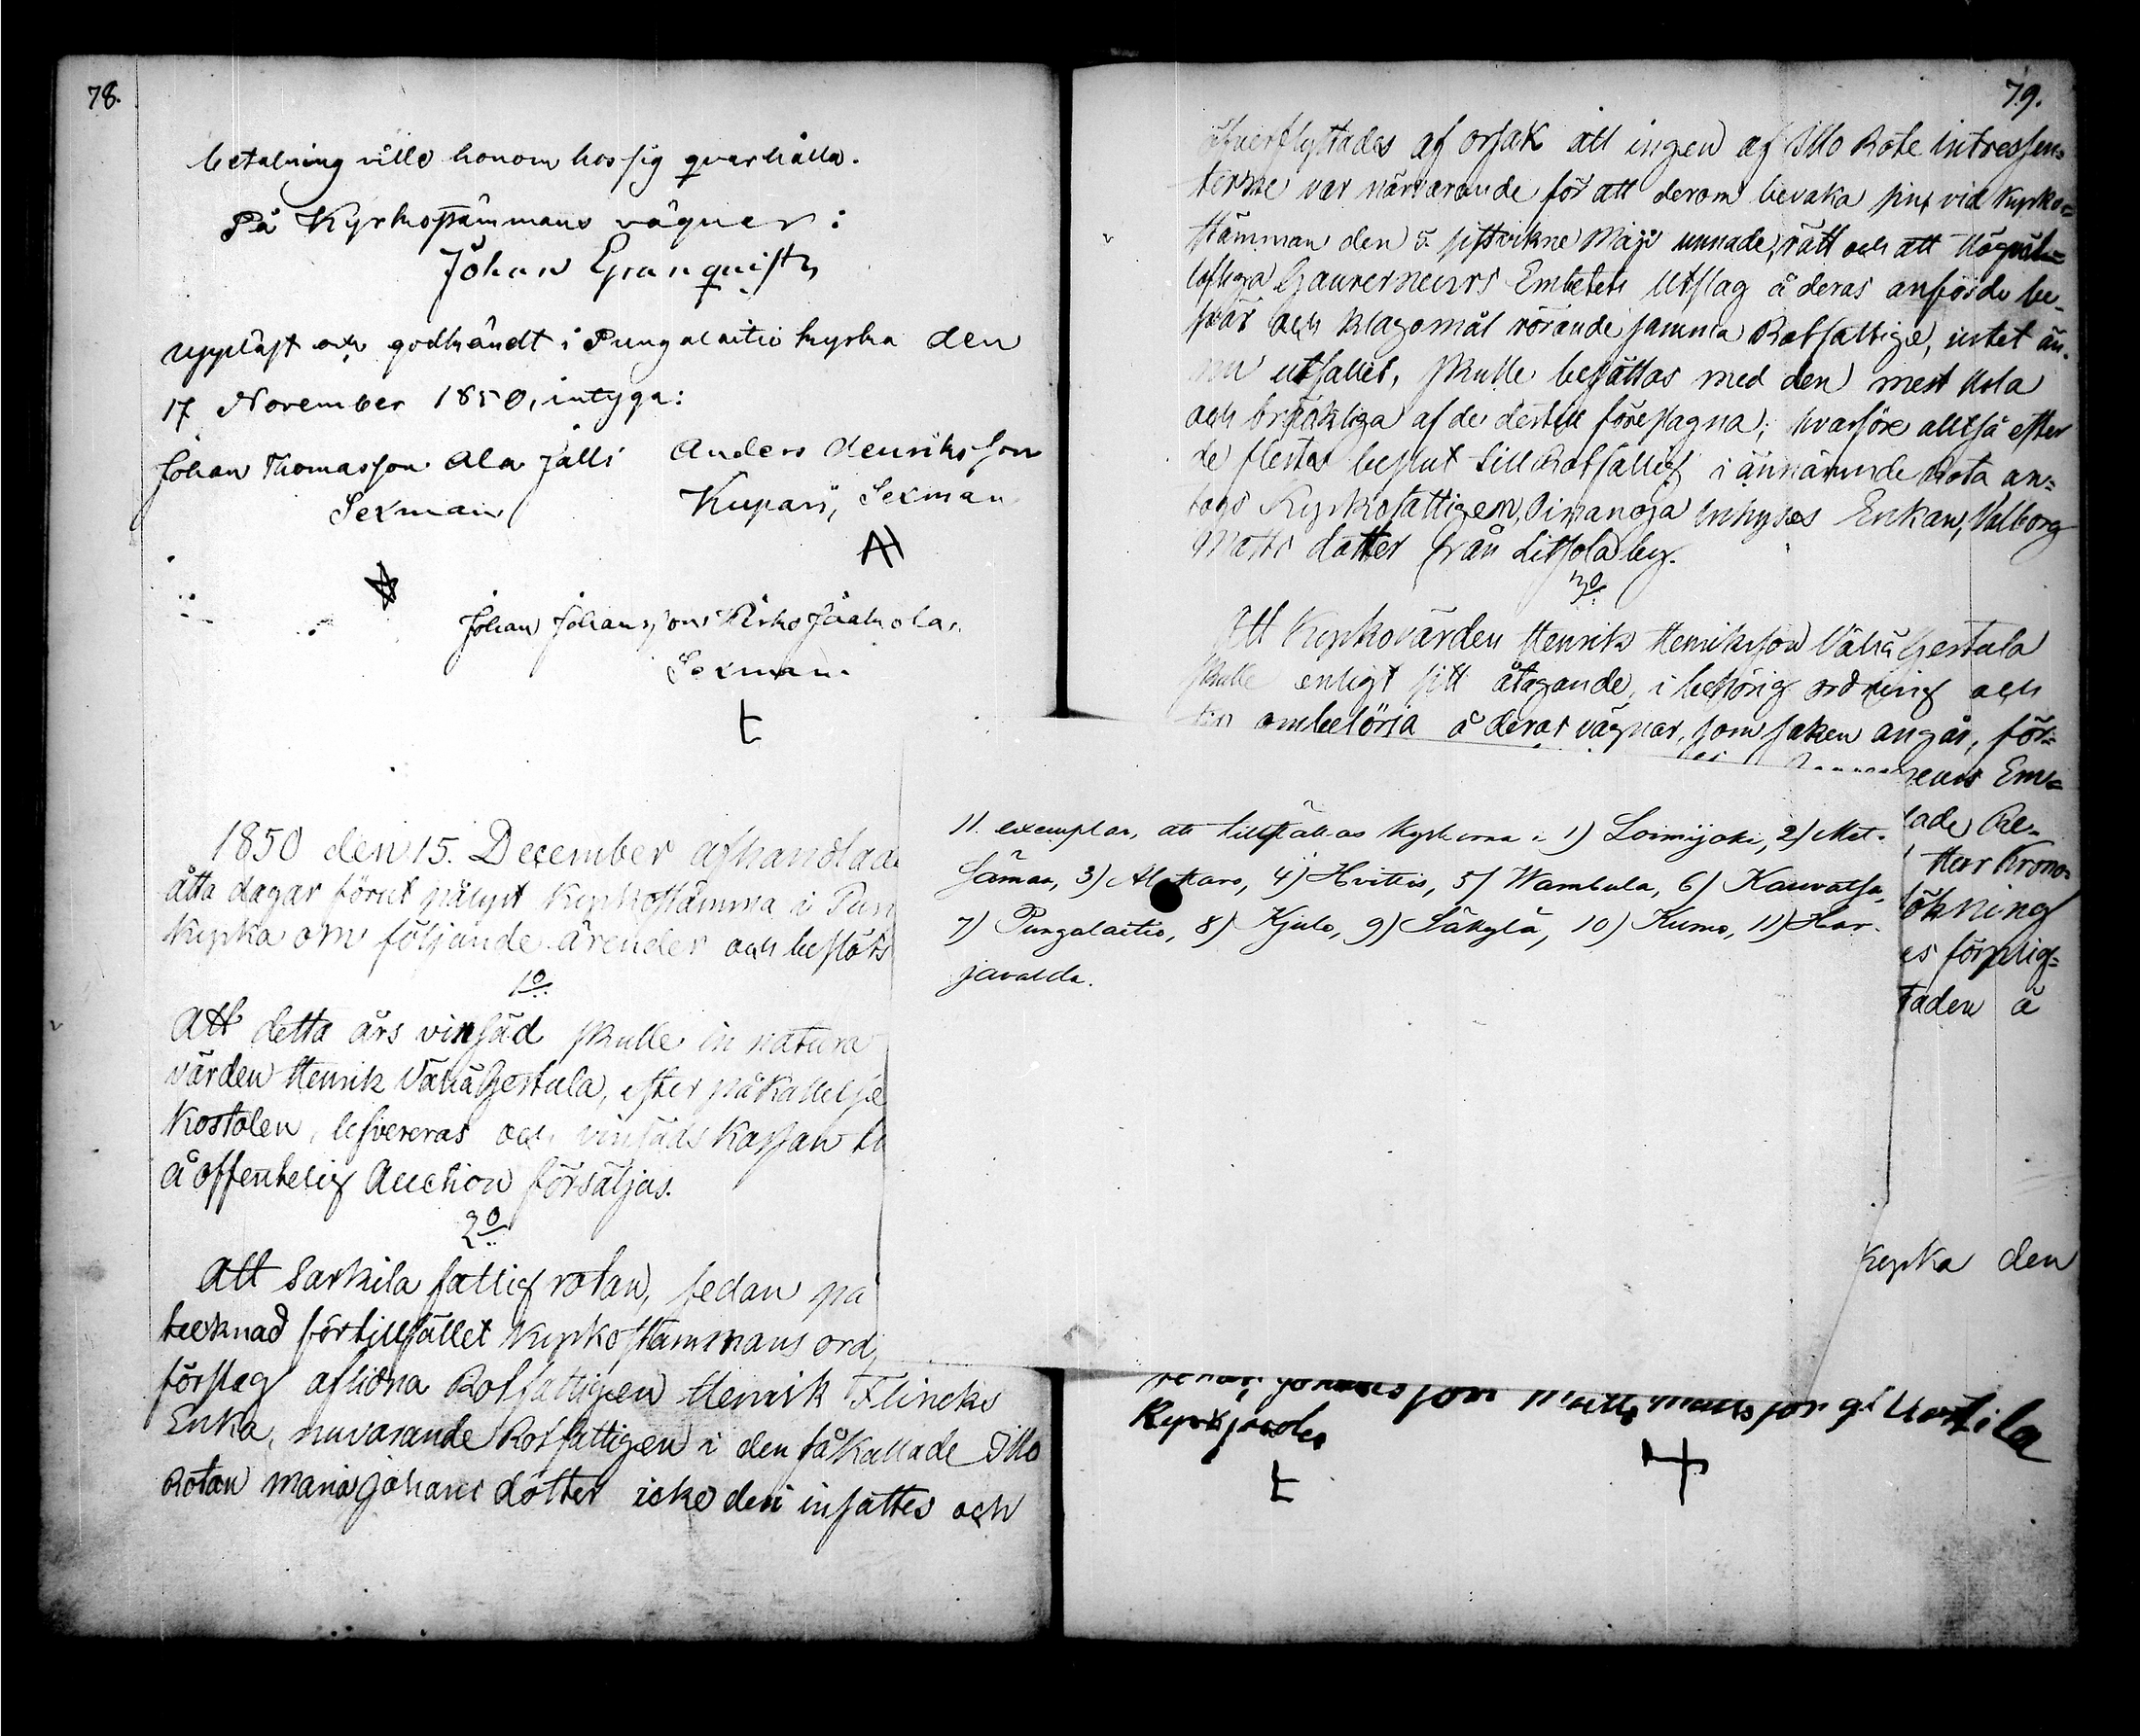 78.
betalning ville honom hos sig qvarhålla.
På Kyrkostämmans vägnar:
Johan Granquist
Uppläst och godkändt i Pungalaitio kyrka den
17 November 1850, intyga:
Johan Thomasson Ala Jalli
Sexman
Anders Henriksson
Kupari, Sexman
Johan Johansson Kirko Jaakola,
Sexman.
1850 den 15. December afhandlade
åtta dagar förut pålyst Kyrkostämma i Pun
Kyrka om följande ärender och beslöts
1o
Att detta års vinsäd skulle in natura
värden Henrik Vähä Gestula, efter påkallelse
kostolen, lefvereras och vinsäds Kassan
å offentelig Auction försäljas.
2o
Att Sarkila fattig rotan, sedan på
tecknad för tillfället Kyrkostämmans ord
förslag aflidna Rotfattigen Henrik Flincks
Enka, nuvarande Rotfattigen i den så kallade Illo
Rotan Maria Johans dotter icke deri insattes och
79.
öfverflyttades af orsak att ingen af Illo Rote intressen=
terne var närvarande för att derom bevaka sin vid Kyrko=
stämman den 5. sistvikne Maji unnade rätt och att Högväl=
loflige Gouverneurs Embetets Utslag å deras anförde be-
svär och klagomål rörande samma Rotfattige, intet än-
nu utfallit, skulle besättas med den mest usla
och bräkliga af de dertill föreslagna; hvarföre alltså efter
de flestas beslut till Rotfattig i ännämnde Rota an=
togs Kyrkofattigen, Inhyses Enkan, Valborg
Matts dotter från Litsola by.
3o
Att Kyrkovärden Henrik Henriksson Vähä Gestula
skulle enligt sitt åtagande, i behörig ordning och
tid ombesörja å deras vägnar, som saken angår, för=
neurs Em=
lade Re-
Herr Krono=
ökning
es förplig=
taden å
11. exemplar, att tillställas Kyrkorna i 1) Loimijoki, 2) Met-
sämaa, 3) Alastaro, 4) Hvittis, 5) Wambula, 6) Kauvatsa,
7) Pungalaitio, 8) Kjulo, 9) Säkylä, 10) Kumo, 11) Har-
javalda.
Kyrka den